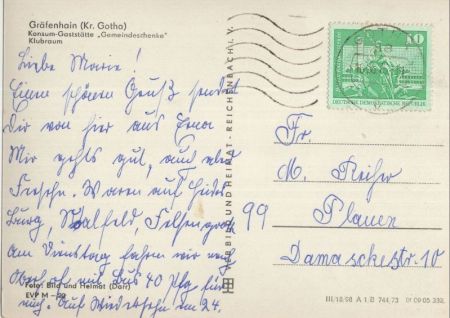 Gräfenhain (Kr. Gotha)
Konsum-Gaststätte „Gemeindeschenke"
Klubraum
Liebe Marie!
Einen schönen Gruß sendet
Dir von hier aus Erna
Mir gehts gut, auch
Frosche. Waren auf
burg, Saalfeld, Felsengrott
Am Dienstag fahren wir nach
Oberhof mit Bus 40 Pfg für
uns. Auf Wiedersehn am 24.
Foto: Bild und Heimat (Dorr)
EVP M –,20
VEB BILD UND HEIMAT · REICHENBACH I. V.
10
DEUTSCHE DEMOKRATISCHE REPUBLIK
Fr.
M. Reiher
99 Plauen
Damaschkestr. 10
III.18.98 A 1 B 744,73 01 09 05 332